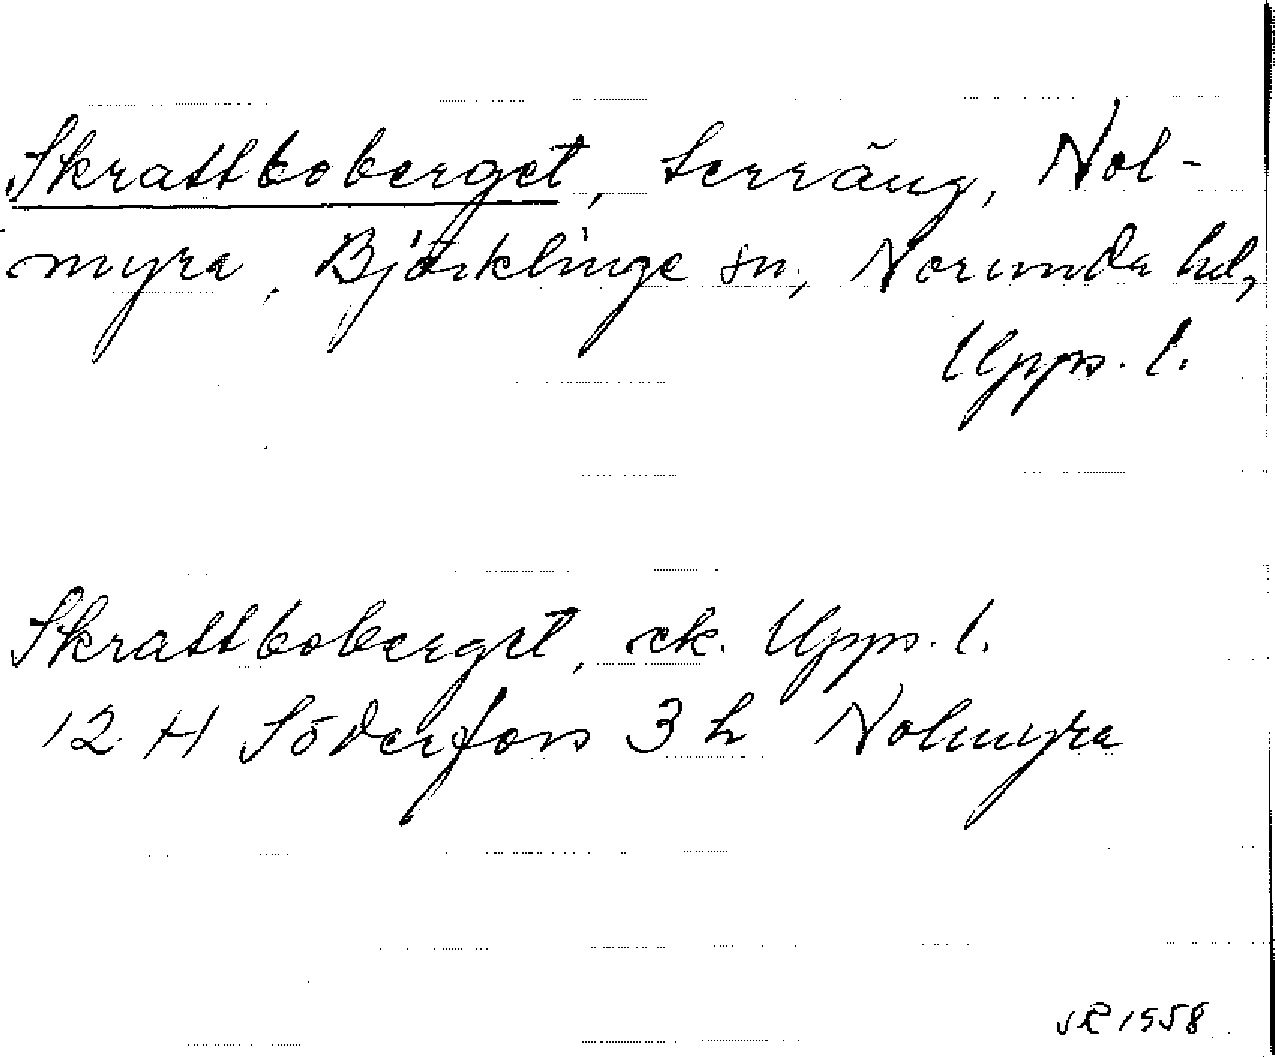 Skrattboberget, terräng, Nol-
myra, Björklinge sn, Norunda hd,
Upps. l.
Skrattboberget, ek. Upps. l.
12 H Söderfors 3 h Nolmyra
1958